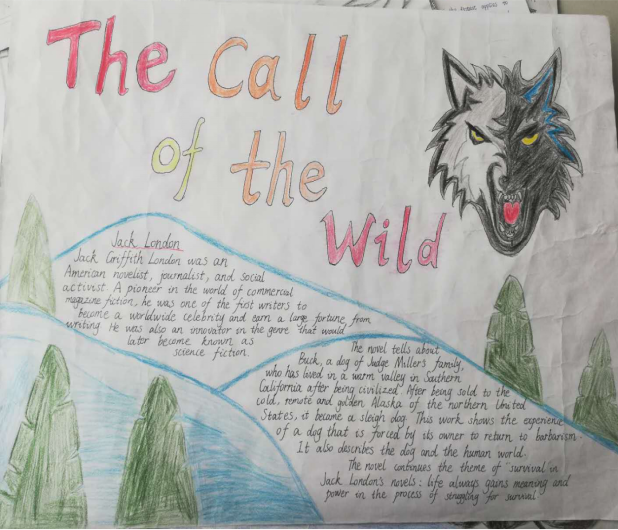 The Call
of the
Wild
Jack London
Jack Griffith London was an
American novelist, journalist, and social
activist. A pioneer in the world of commercial
magazine fiction, he was one of the first writers to
become a worldwide celebrity and earn a large fortune from
writing. He was also an innovator in the genre that would
later become known as
science fiction.
The novel tells about
Buck, a dog of Judge Miller's family,
who has lived in a warm valley in Southern
California after being civilized. After being sold to the
cold, remote and golden Alaska of the northern United
States, it became a sleigh dog. This work shows the experience
of a dog that is forced by its owner to return to barbarism.
It also describes the dog and the human world.
The novel continues the theme of "survival" in
Jack London's novels: life always gains meaning and
power in the process of struggling for survival